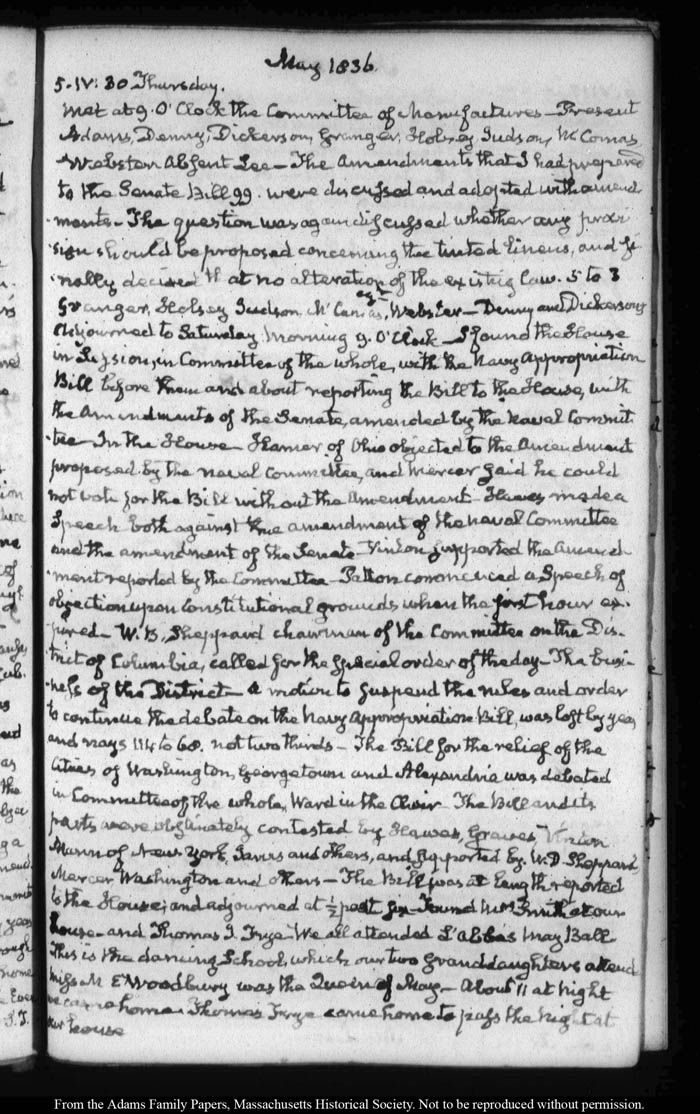 May 1836.
5. IV: 30 Thursday.
Met at 9. O'Clock the Committee of Manufactures — Present
Adams, Denny, Dickerson, Granger, Halsey, Judson, McComas,
Webster. Absent Lee — The Amendments that I had prepared
to the Senate Bill 99. were discussed and adopted with amend
ments — The question was again discussed whether any provi
sion should be proposed concerning the tinted linens, and fi
nally decided that no alteration of the existing law. 5 to 3
Granger, Halsey Judson, McComas, Webster — Denny and Dickerson
Adjourned to Saturday Morning 9. O'Clock — I found the House
in Session, in Committee of the whole, with the Navy Appropriation
Bill before them and about reporting the Bill to the House, with
the Amendments of the Senate, amended by the Naval Commit
tee — In the House Hamer of Ohio objected to the Amendment
proposed by the naval Committee, and Mercer said he could
not vote for the Bill without the Amendment — Hawes made a
Speech both against the amendment of the naval Committee
and the amendment of the Senate — Vinton supported the Amend
ment reported by the Committee — Patton commenced a Speech of
objection upon Constitutional grounds when the first hour ex
pired — W. B. Sheppard chairman of the Committee on the Dis
trict of Columbia, called for the special order of the day — The busi
ness of the District — A motion to suspend the rules and order
to continue the debate on the Navy Appropriation Bill, was lost by yeas
and nays 114 to 60. not two thirds — The Bill for the relief of the
Cities of Washington, Georgetown and Alexandria was debated
in Committee of the whole, Ward in the Chair — The Bill and its
parts were obstinately contested by Hawes, Graves, Vinton
Mann of New York, Janis and others, and supported by W. B. Sheppard,
Mercer, Washington and others — The Bill was at length reported
to the House; and adjourned at ½ past six — Found Mrs Smith at our
house — and Thomas J. Frye — We all attended L'Abbes May Ball
This is the dancing School, which our two Granddaughters attend
Miss M E Woodbury was the Queen of May — About 11 at Night
we came home. Thomas Frye came home to pass the night at
our house
From the Adams Family Papers, Massachusetts Historical Society. Not to be reproduced without permission.